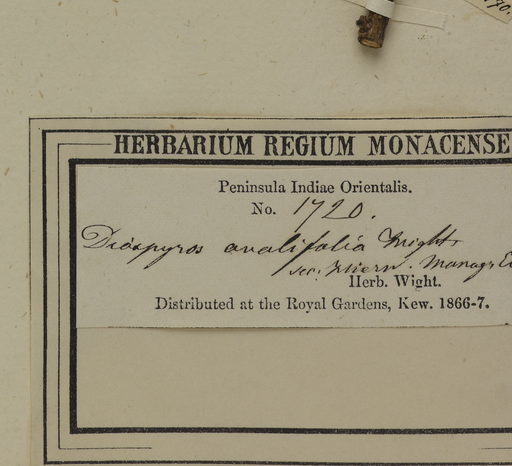 HERBARIUM REGIUM MONACENSE
Peninsula Indiae Orientalis.
No. 1720.
Diospyros ovalifolia Wight
sec. Hiern. Monogr
Herb. Wight.
Distributed at the Royal Gardens, Kew. 1866-7.